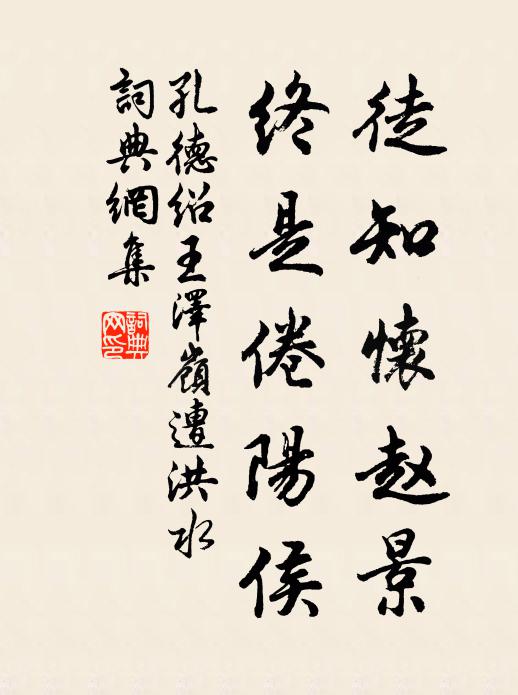 徒知懷赵景
終是倦陽侯
孔德绍王澤嶺遭洪水
詞典網集
詞典網印